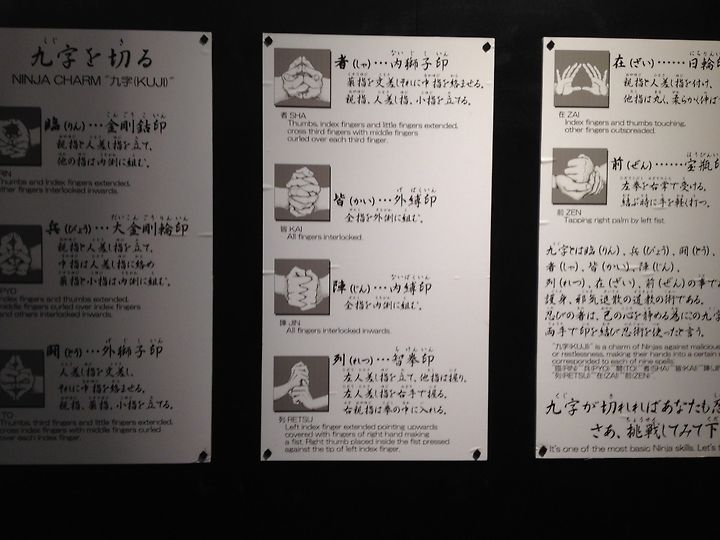 九字を切る
NINJA CHARM "九字(KUJI)"
臨(りん)…金剛鈷印
親指と人差し指を立て、
他の指は内側に組む。
RIN
Thumbs and index fingers extended,
other fingers interlocked inwards.
兵(びょう)…大金剛輪印
親指と人差し指を立て、
中指は人差し指に絡め
薬指と小指は内側に組む。
PYO
Index fingers and thumbs extended,
middle fingers curled over index fingers
and others interlocked inwards.
闘(とう)…外獅子印
人差し指と交差し、
それに中指を絡ませる。
親指、薬指、小指を立てる。
TO
Thumbs, third fingers and little fingers extended,
cross index fingers with middle fingers curled
over each index finger.
者(しゃ)…内獅子印
薬指を交差しそれに中指を絡ませる。
親指、人差し指、小指を立てる。
者 SHA
Thumbs, index fingers and little fingers extended,
cross third fingers with middle fingers
curled over each third finger.
皆(かい)…外縛印
全指を外側に組む。
皆 KAI
All fingers interlocked.
陣(じん)…内縛印
全指を内側に組む。
陣 JIN
All fingers interlocked inwards.
列(れつ)…智拳印
左人差し指を立て、他指は握り、
左人差し指を右手で握る。
右親指は拳の中に入れる。
列 RETSU
Left index finger extended pointing upwards
covered with fingers of right hand making
a fist. Right thumb placed inside the fist pressed
against the tip of left index finger.
在(ざい)……日輪印
親指と人差し指を付け、
他指は丸し、柔らかく伸ば
在 ZAI
Index fingers and thumbs touching,
other fingers outspreaded.
前(ぜん)……宝瓶印
左拳を右掌で受ける。
結ぶ時に手を軽く打つ。
前 ZEN
Tapping right palm by left fist.
九字とは臨(りん)、兵(びょう)、闘(とう)、
者(しゃ)、皆(かい)、陣(じん)、
列(れつ)、在(ざい)、前(ぜん)の事であ
護身、邪気退散の道教の術である。
忍びの者は、己の心を静める為にこの九字
両手で印を結び忍術を使ったと言う。
"九字(KUJI)" is a charm of Ninjas against malicious
or restlessness, making their hands into a certain
corresponded to each of nine spells:
"臨(RIN)" 兵(PYO)" "闘(TO)" "者(SHA)" "皆(KAI)" "陣(JIN
"列(RETSU)" "在(ZAI)" "前(ZEN)".
九字が切れればあなたも忍
さあ、挑戦してみて下
It's one of the most basic Ninja skills. Let's t